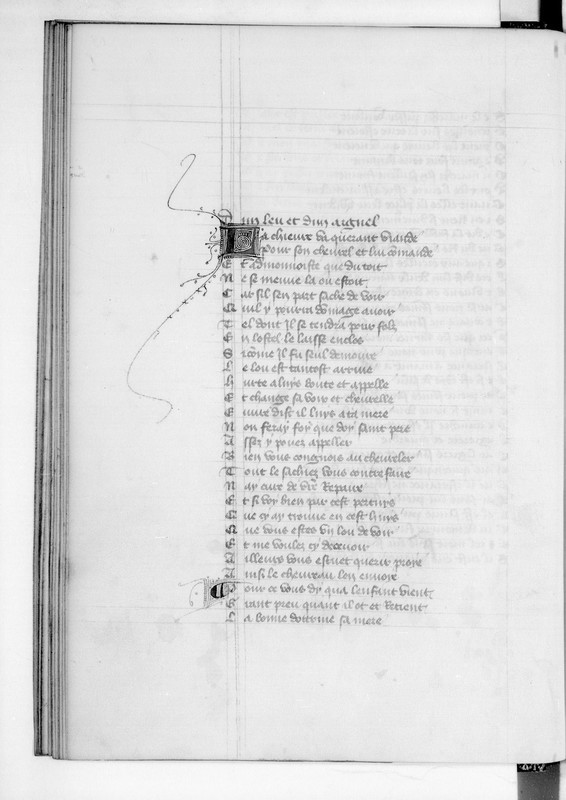 D un leu et dun aignel
L a chieure va querant viande
Pour son cheurel et lui comande
E t amonnoiste que du toit
N e se meuue la ou estoit
C ar sil sen part sache de voir
Q uil y pourra domage auoir
T el dont Il se tendra pour folz
E n lostel le laisse enclos
S icome Il fu seul demoure
L e lou est tantost arriue
h urte a luys doute et appelle
E t change sa voix et cheurelle
E uure dist il luys a ta mere
N on feray foy que doy saint pere
A ssez y pouez appeller
B ien vous congnois au cheureler
T out le sachiez vous contrefaire
N ay cure de vre Repaire
E t si voy bien par cest pertuys
Q ue cy ay trouue en cest huys
Q ue vous estes vn lou de voir
E t me voulez cy deceuoir
A illeurs vous estuet querir proye
A insi le cheureau len enuoye
P our ce vous dy qua lenfant vient
G rant preu quant il ot et Retient
L a bonne dottrine sa mere